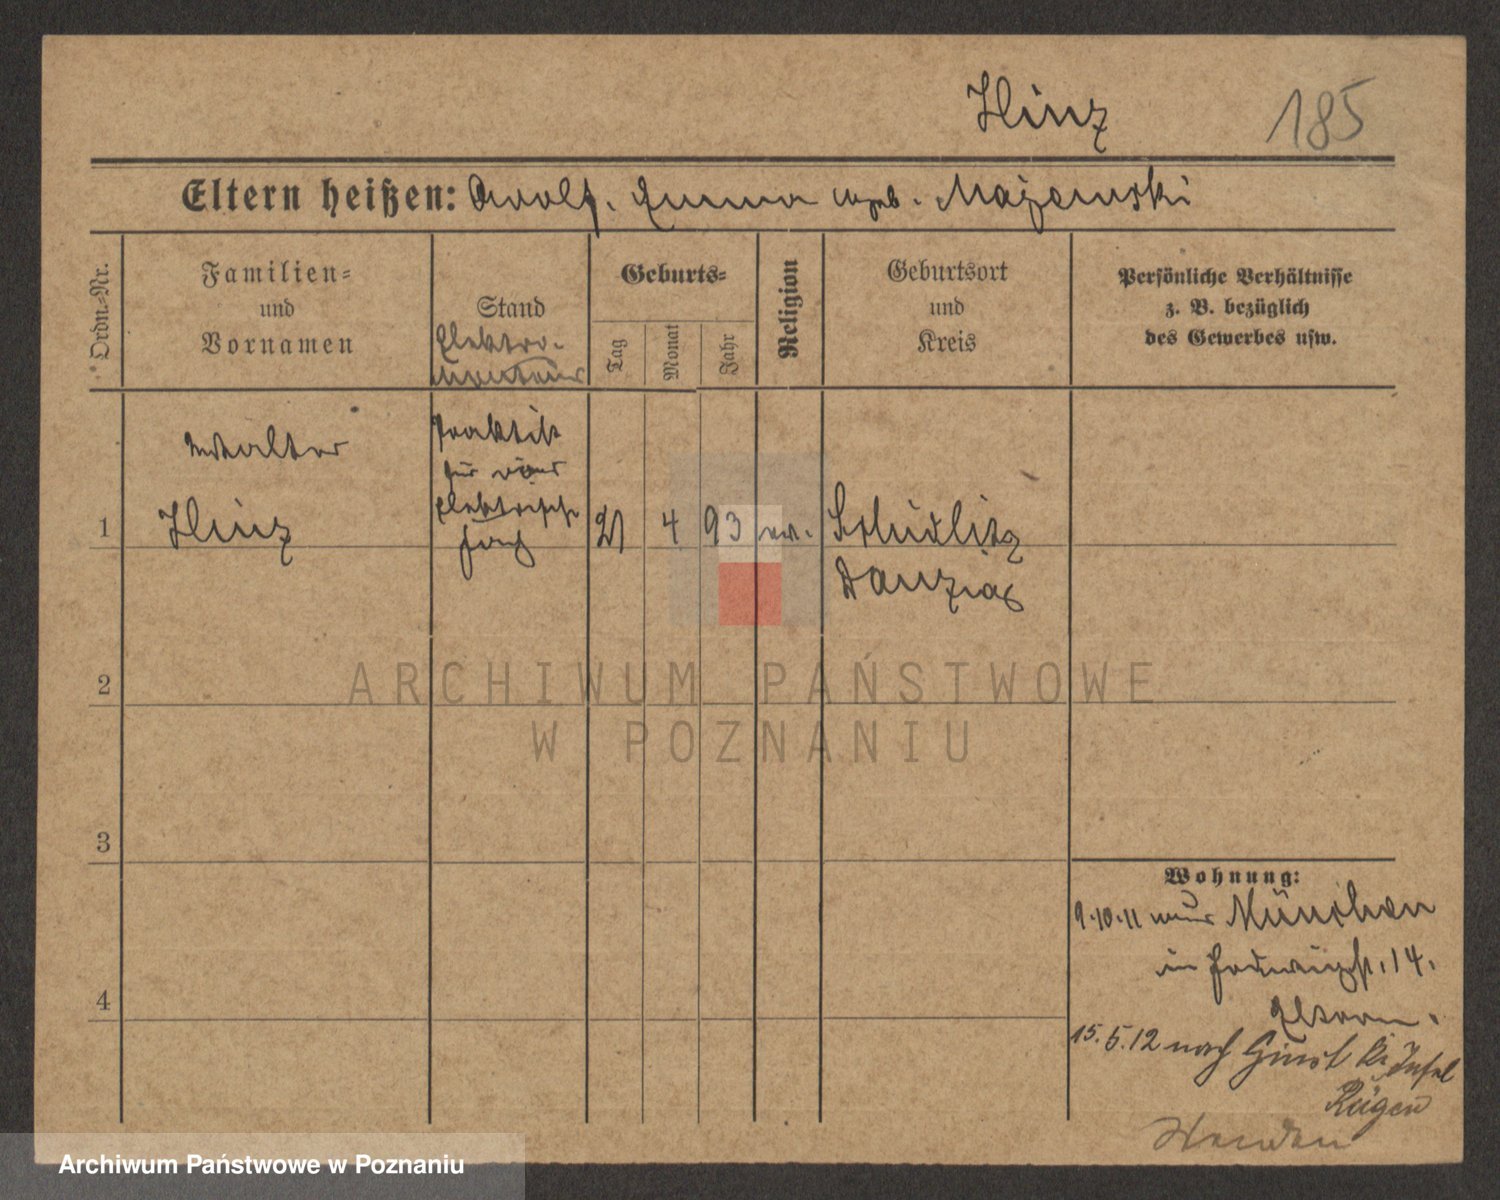 Hinz 185
Eltern heißen: Adolf. Emma geb. Majewski
Ordn.=Nr.
Familien=
und
Vornamen
Stand
Elektro-
monteur
Geburts=
Tag
Monat
Jahr
Religion
Geburtsort
und
Kreis
Persönliche Verhältnisse
z. B. bezüglich
des Gewerbes usw.
Walter
Hinz
Praktik
für
elektrische
1
21 4 93 ev.
Schidlitz
Danzig
2
3
4
Wohnung:
9.10.11 München
in 14.
Eltern.
15.5.12 nach Insel
Rügen
ARCHIWUM PAŃSTWOWE
W POZNANIU
Archiwum Państwowe w Poznaniu